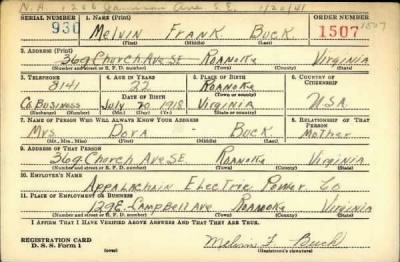 N.A. 1206 Jamison Ave S.E. 1/20/41
SERIAL NUMBER 1. NAME (Print) ORDER NUMBER
930 Melvin Frank Buck 1507 1507
(First) (Middle) (Last)
2. ADDRESS (Print)
369 Church Ave SE Roanoke Virginia
(Number and street or R. F. D. number) (Town) (County) (State)
3. TELEPHONE 4. AGE IN YEARS 5. PLACE OF BIRTH 6. COUNTRY OF CITIZENSHIP
3141 22 Roanoke
DATE OF BIRTH (Town or county)
Co. Business July 20 1918 Virginia U.S.A.
(Exchange) (Number) (Mo.) (Day) (Yr.) (State or country)
7. NAME OF PERSON WHO WILL ALWAYS KNOW YOUR ADDRESS 8. RELATIONSHIP OF THAT PERSON
Mrs. Dora Buck Mother
(Mr., Mrs., Miss) (First) (Middle) (Last)
9. ADDRESS OF THAT PERSON
369 Church Ave SE. Roanoke Virginia
(Number and street or R. F. D. number) (Town) (County) (State)
10. EMPLOYER'S NAME
Appalachain Electric Power Co
11. PLACE OF EMPLOYMENT OR BUSINESS
129 E. Campbell Ave Roanoke Virginia
(Number and street or R. F. D. number) (Town) (County) (State)
I AFFIRM THAT I HAVE VERIFIED ABOVE ANSWERS AND THAT THEY ARE TRUE.
REGISTRATION CARD
D. S. S. Form 1 (over) Melvin F. Buck
(Registrant's signature)